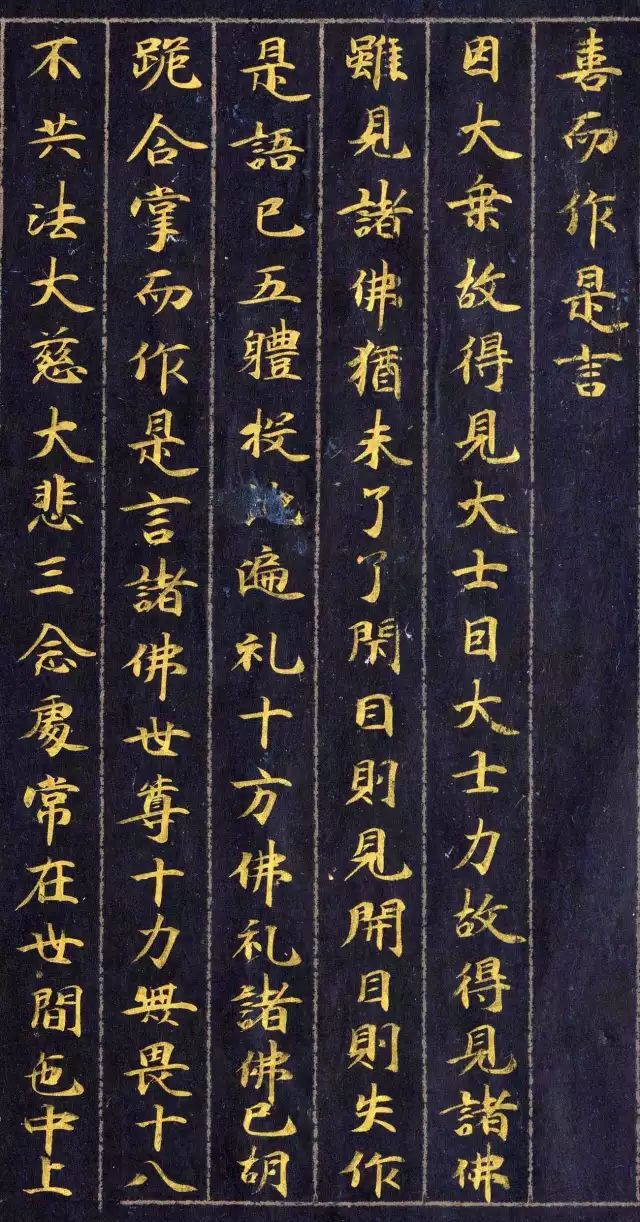 喜而作是言
因大乗故得見大士因大士力故得見諸佛
雖見諸佛猶未了了閇目則見開目則失作
是語已五體投地遍礼十方佛礼諸佛已胡
跪合掌而作是言諸佛世尊十力無畏十八
不共法大慈大悲三念處常在世間色中上